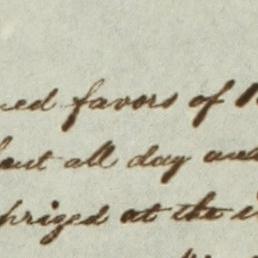 ed favors of
out all day and
prized at the